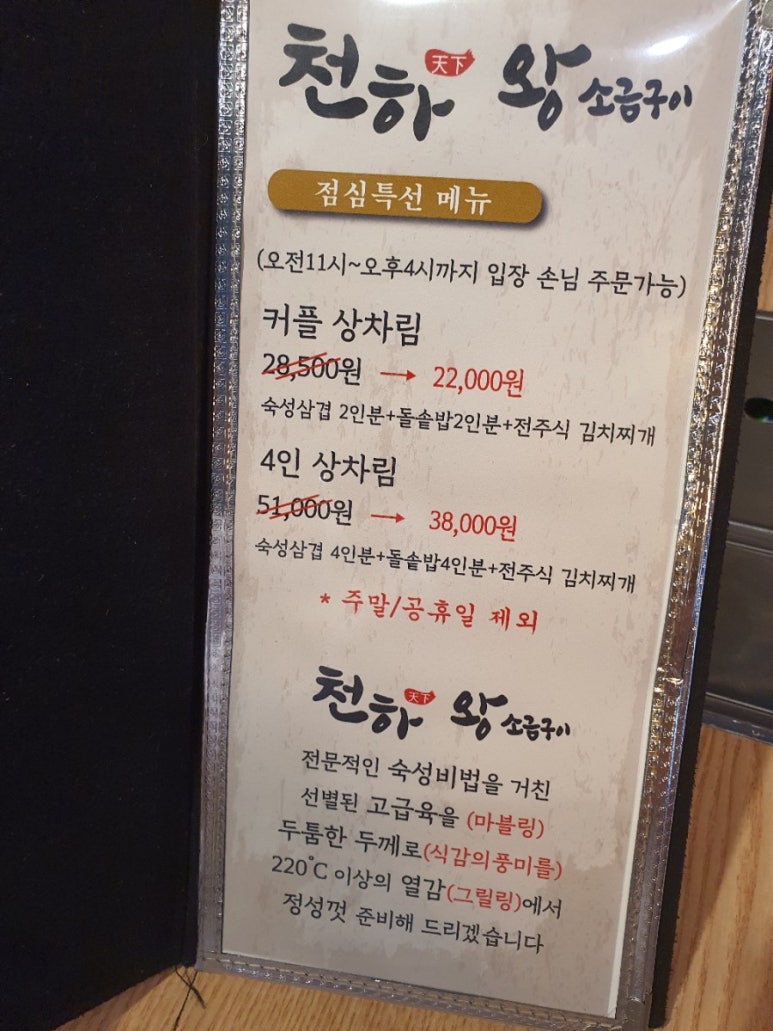 천하 天下 왕 소금구이
점심특선 메뉴
(오전11시~오후4시까지 입장 손님 주문가능)
커플 상차림
28,500원 → 22,000원
숙성삼겹 2인분+돌솥밥2인분+전주식 김치찌개
4인 상차림
51,000원 → 38,000원
숙성삼겹 4인분+돌솥밥4인분+전주식 김치찌개
* 주말/공휴일 제외
천하 天下 왕 소금구이
전문적인 숙성비법을 거친
선별된 고급육을 (마블링)
두툼한 두께로(식감의풍미를)
220℃ 이상의 열감(그릴링)에서
정성껏 준비해 드리겠습니다